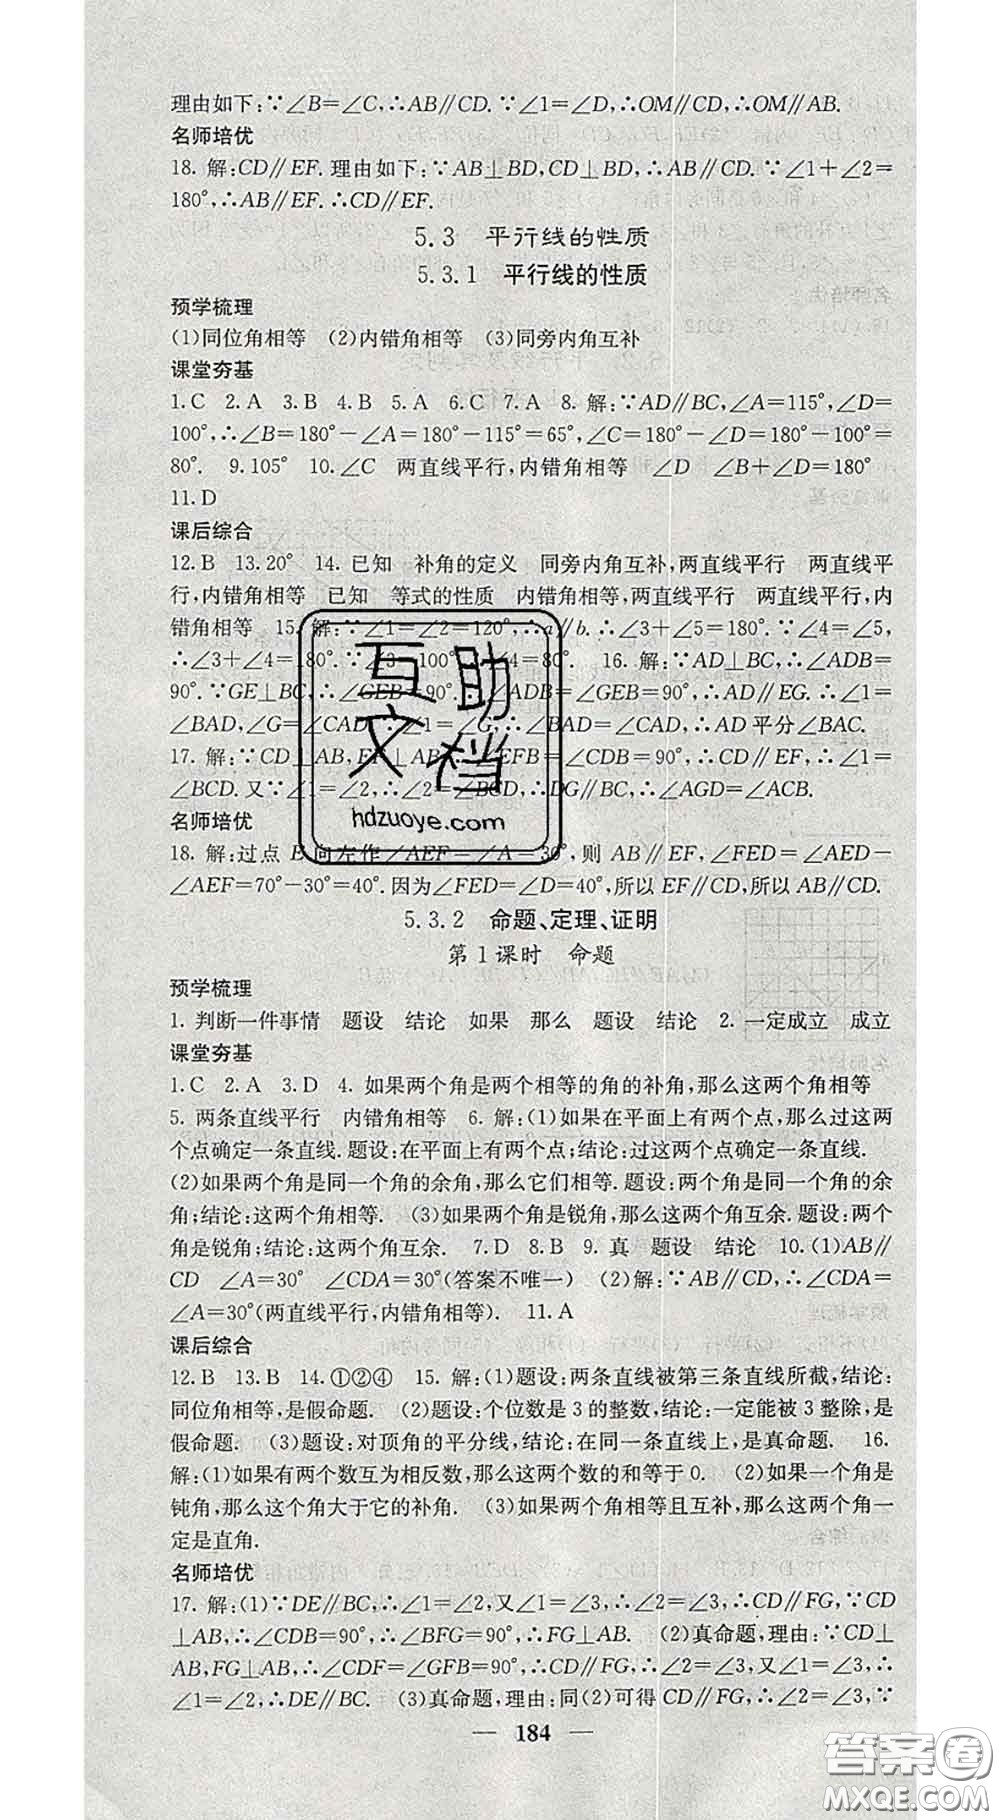 理由如下:∵∠B=∠C,∴AB∥CD.∵∠1=∠D,∴OM∥CD,∴OM∥AB.
名师培优
18. 解:CD∥EF. 理由如下:∵AB⊥BD,CD⊥BD,∴AB∥CD.∵∠1+∠2=
180°,∴AB∥EF.∴CD∥EF.
5.3 平行线的性质
5.3.1 平行线的性质
预学梳理
(1)同位角相等 (2)内错角相等 (3)同旁内角互补
课堂夯基
1.C 2.A 3.B 4.B 5.A 6.C 7.A 8. 解:∵AD∥BC,∠A=115°,∠D=
100°,∴∠B=180°-∠A=180°-115°=65°,∠C=180°-∠D=180°-100°=
80°. 9.105° 10.∠C 两直线平行,内错角相等 ∠D ∠B+∠D=180°
11.D
课后综合
12.B 13.20° 14. 已知 补角的定义 同旁内角互补,两直线平行 两直线平
行,内错角相等 已知 等式的性质 内错角相等,两直线平行 两直线平行,内
错角相等 15. 解:∵∠1=∠2=120°,∴a∥b.∴∠3+∠5=180°.∵∠4=∠5,
∴∠3+∠4=180°.∵∠3=100°,∴∠4=80°. 16. 解:∵AD⊥BC,∴∠ADB=
90°.∵GE⊥BC,∴∠GEB=90°.∴∠ADB=∠GEB=90°,∴AD∥EG.∴∠1=
∠BAD,∠G=∠CAD.∵∠1=∠G,∴∠BAD=∠CAD,∴AD平分∠BAC.
17. 解:∵CD⊥AB,EF⊥AB,∴∠EFB=∠CDB=90°,∴CD∥EF,∴∠1=
∠BCD.又∵∠1=∠2,∴∠2=∠BCD,∴DG∥BC,∴∠AGD=∠ACB.
名师培优
18. 解:过点 E 向左作∠AEF=∠A=30°,则 AB∥EF,∠FED=∠AED-
∠AEF=70°-30°=40°.因为∠FED=∠D=40°,所以EF∥CD,所以AB∥CD.
5.3.2 命题、定理、证明
第1课时 命题
预学梳理
1. 判断一件事情 题设 结论 如果 那么 题设 结论 2. 一定成立 成立
课堂夯基
1.C 2.A 3.D 4. 如果两个角是两个相等的角的补角,那么这两个角相等
5. 两条直线平行 内错角相等 6. 解:(1)如果在平面上有两个点,那么过这两
个点确定一条直线.题设:在平面上有两个点;结论:过这两个点确定一条直线.
(2)如果两个角是同一个角的余角,那么它们相等.题设:两个角是同一个角的余
角;结论:这两个角相等. (3)如果两个角是锐角,那么这两个角互余.题设:两个
角是锐角;结论:这两个角互余. 7.D 8.B 9. 真 题设 结论 10.(1)AB∥
CD ∠A=30° ∠CDA=30°(答案不唯一) (2)解:∵AB∥CD,∴∠CDA=
∠A=30°(两直线平行,内错角相等). 11.A
课后综合
12.B 13.B 14.①②④ 15. 解:(1)题设:两条直线被第三条直线所截,结论:
同位角相等,是假命题. (2)题设:个位数是3的整数,结论:一定能被3整除,是
假命题. (3)题设:对顶角的平分线,结论:在同一条直线上,是真命题. 16.
解:(1)如果有两个数互为相反数,那么这两个数的和等于0. (2)如果一个角是
钝角,那么这个角大于它的补角. (3)如果两个角相等且互补,那么这两个角一
定是直角.
名师培优
17. 解:(1)∵DE∥BC,∴∠1=∠2,又∠1=∠3,∴∠2=∠3,∴CD∥FG,∵CD
⊥AB,∴∠CDB=90°,∴∠BFG=90°,∴FG⊥AB. (2)真命题,理由:∵CD⊥
AB,FG⊥AB,∴∠CDF=∠GFB=90°,∴CD∥FG,∴∠2=∠3,又∠1=∠3,∴
∠1=∠2,∴DE∥BC. (3)真命题,理由:同(2)可得CD∥FG,∴∠2=∠3,∵
— 184 —
互助
文档
hdzuoye.com
答案圈
MXQE.COM